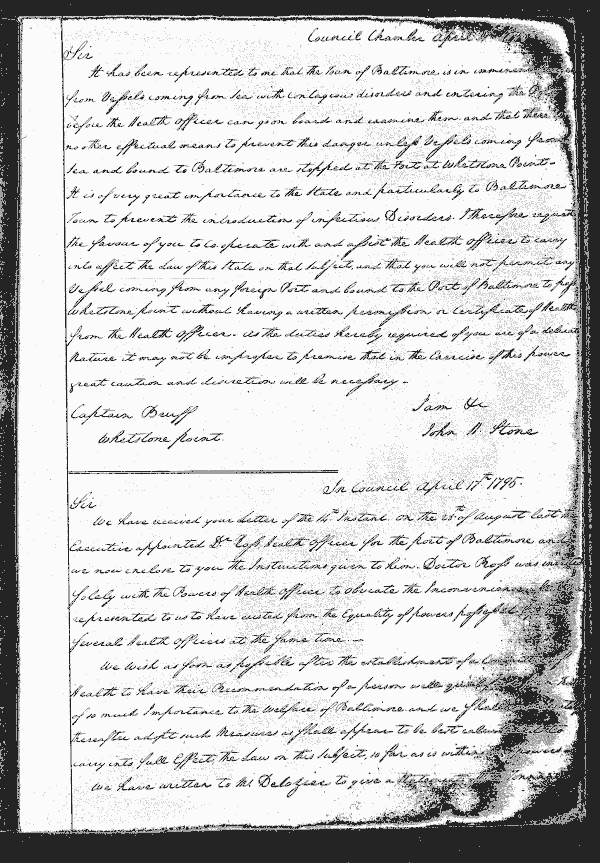 Council Chamber April
Sir
It has been represented to me that the Town of Baltimore is in imminent
from Vessels coming from Sea with contagious disorders and entering the
before the Health Officer can go on board and examine them and that there
no other effectual means to prevent this danger unless Vessels coming from
Sea and bound to Baltimore are stopped at the Fort at Whetstone Point -
It is of very great importance to the State and particularly to Baltimore
Town to prevent the introduction of infectious Disorders. I therefore request
the favour of you to Co. operate with and assist the Health Officer to carry
into effect the Law of this State on that subject, and that you will not permit any
Vessel coming from any foreign Port and bound to the Port of Baltimore to pass
Whetstone point without having a written permission or Certificate of Health
from the Health Officer - As the duties hereby required of you are of a delicate
Nature it may not be improper to premise that in the Exercise of this power
great caution and discretion will be necessary -
Captain Bruff
Whetstone point.
I am &c
John H. Stone
In Council April 17th 1795.
Sir
We have received your Letter of the Instant. On the of August last
Executive appointed Dr. Ross health Officer for the port of Baltimore and
we now enclose to you the Instructions given to him. Doctor Ross was
Solely with the Powers of Health Officer to obviate the Inconveniences
represented to us to have existed from the Equality of powers possessed
several health Officers at the same time. -
We Wish as soon as possible after the establishment of a
Health to have their Recommendation of a person well
of so much Importance to the Welfare of Baltimore and we shall
thereafter adopt such Measures as shall appear to be best
carry into full Effect, the Law on this Subject, so far as is within powers
We have written to Mr. Delozier to give a